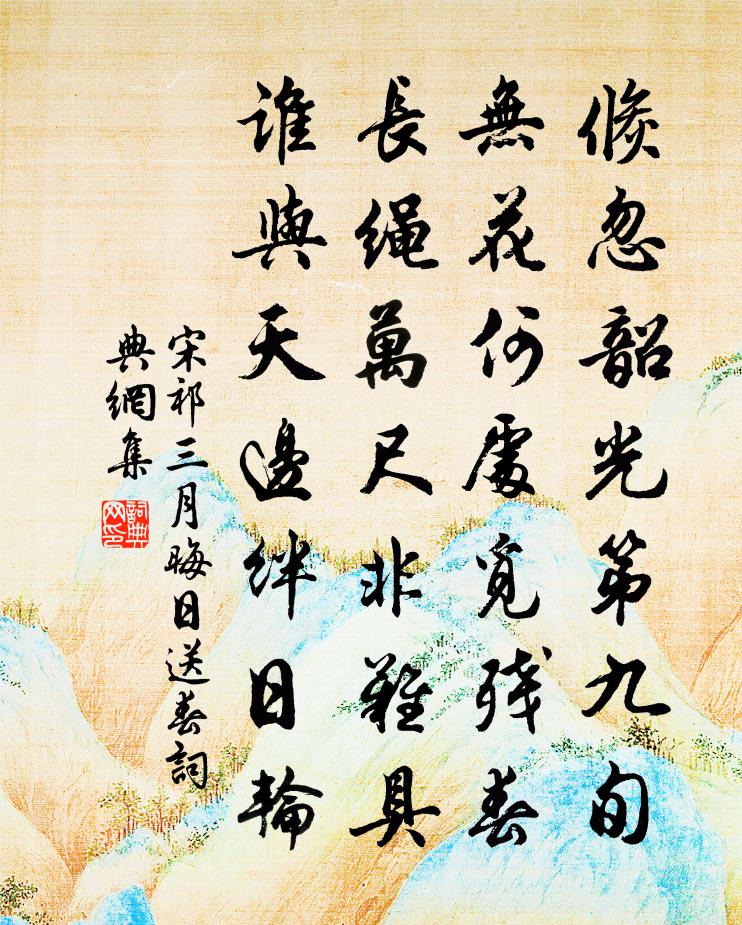 倏忽韶光第九旬
無花何處覓殘春
長繩萬尺非難具
誰與天邊絆日輪
宋祁三月晦日送春詞
典網集
詞典網印